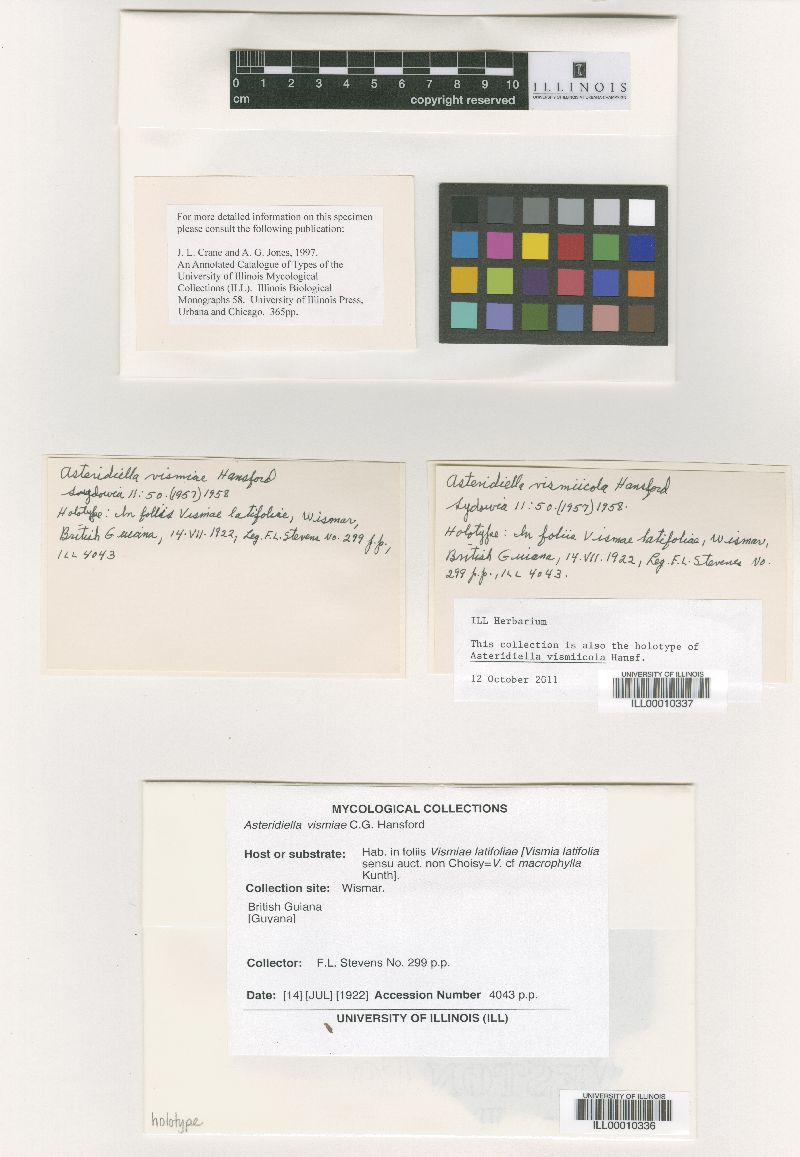 0 1 2 3 4 5 6 7 8 9 10
cm
copyright reserved
ILLINOIS
UNIVERSITY OF ILLINOIS AT URBANA-CHAMPAIGN
For more detailed information on this specimen
please consult the following publication:
J. L. Crane and A. G. Jones, 1997.
An Annotated Catalogue of Types of the
University of Illinois Mycological
Collections (ILL). Illinois Biological
Monographs 58. University of Illinois Press,
Urbana and Chicago. 365pp.
Asteridiella vismiae Hansford
Sydowia 11:50.(1957)1958
Holotype: In foliis Vismae latifoliae, Wismar,
British Guiana, 14.VII.1922, Leg. F.L. Stevens No. 299 p.p.,
ILL 4043
Asteridiella vismiicola Hansford
Sydowia 11:50.(1957)1958.
Holotype: In foliis Vismae latifoliae, Wismar,
British Guiana, 14.VII.1922, Leg. F.L. Stevens No.
299 p.p., ILL 4043.
ILL Herbarium
This collection is also the holotype of
Asteridiella vismiicola Hansf.
12 October 2011
UNIVERSITY OF ILLINOIS
ILL00010337
MYCOLOGICAL COLLECTIONS
Asteridiella vismiae C.G. Hansford
Host or substrate: Hab. in foliis Vismiae latifoliae [Vismia latifolia
sensu auct. non Choisy=V. cf macrophylla
Kunth].
Collection site: Wismar.
British Guiana
[Guyana]
Collector: F.L. Stevens No. 299 p.p.
Date: [14] [JUL] [1922] Accession Number 4043 p.p.
UNIVERSITY OF ILLINOIS (ILL)
holotype
UNIVERSITY OF ILLINOIS
ILL00010336